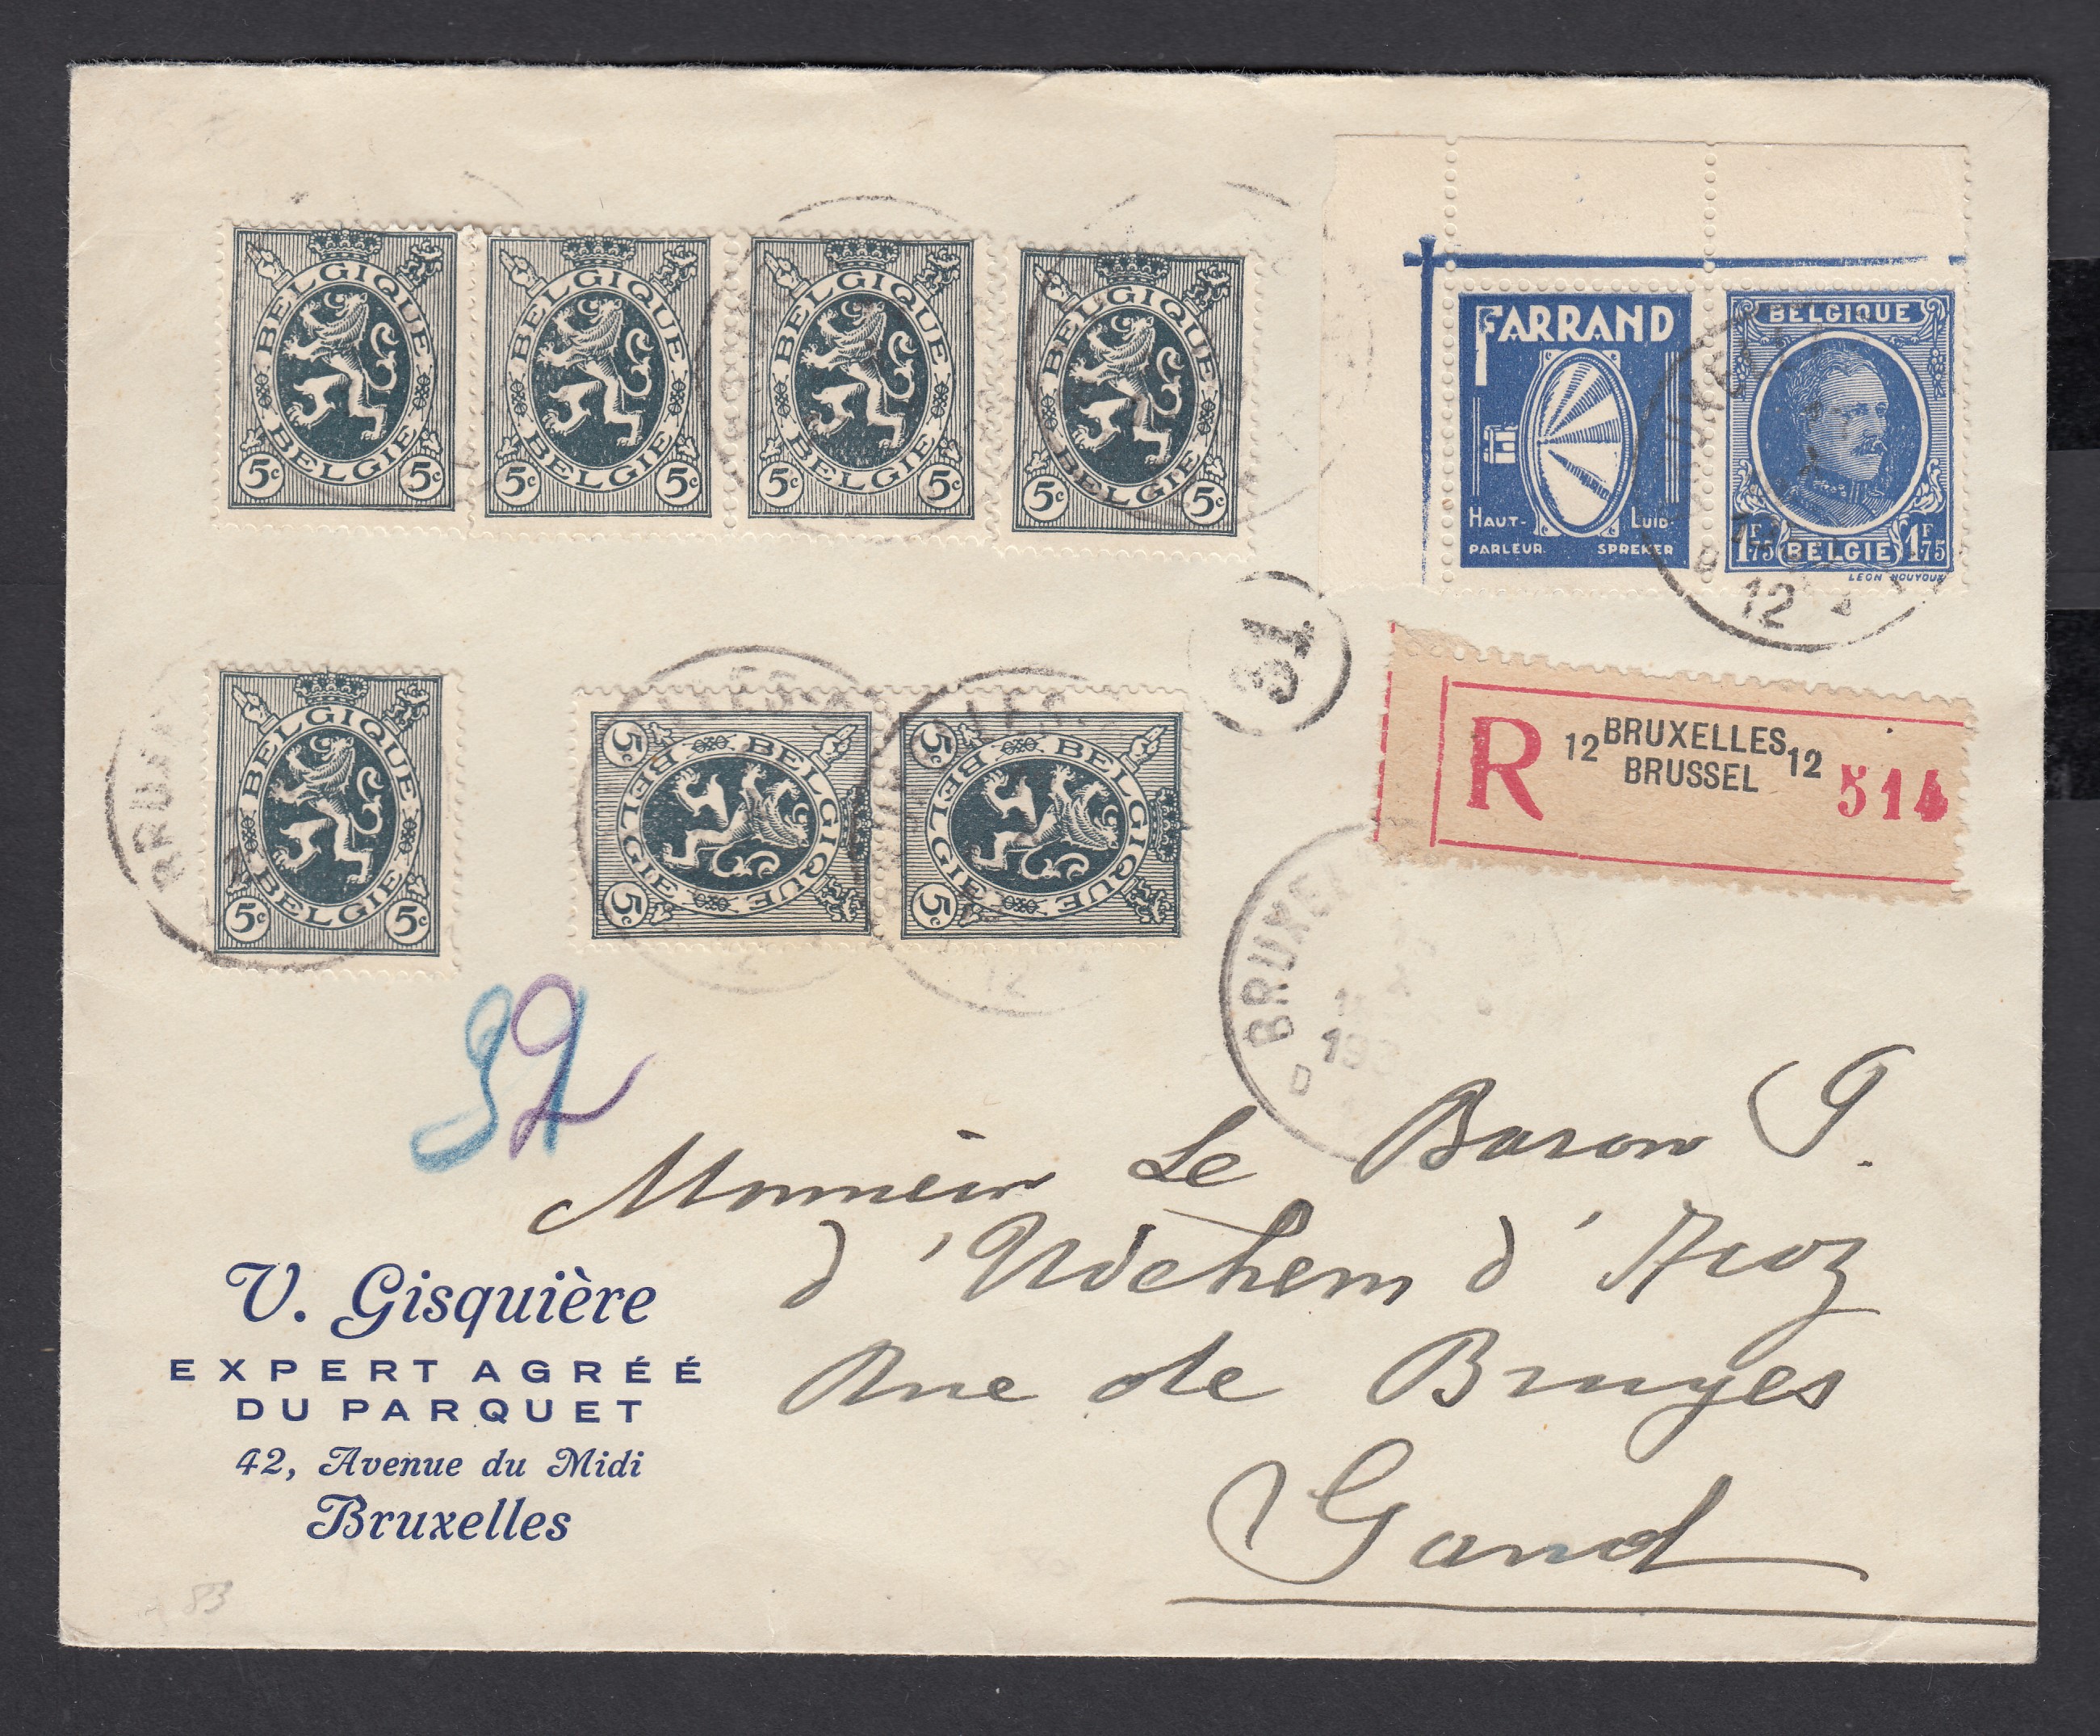 BELGIQUE
BELGIE
5c 5c
BELGIQUE
BELGIE
5c 5c
BELGIQUE
BELGIE
5c 5c
BELGIQUE
BELGIE
5c 5c
FARRAND
HAUT-
PARLEUR
LUID-
SPREKER
BELGIQUE
1F75 BELGIE 1F75
LEON HOUYOUX
12
31
BELGIQUE
BELGIE
5c 5c
BELGIQUE
BELGIE
5c 5c
BELGIQUE
BELGIE
5c 5c
12
12
R 12 BRUXELLES 12 514
BRUSSEL
D
Monsieur Le Baron G.
Rue de Bruges
Gand
V. Gisquière
EXPERT AGRÉÉ
DU PARQUET
42, Avenue du Midi
Bruxelles
83